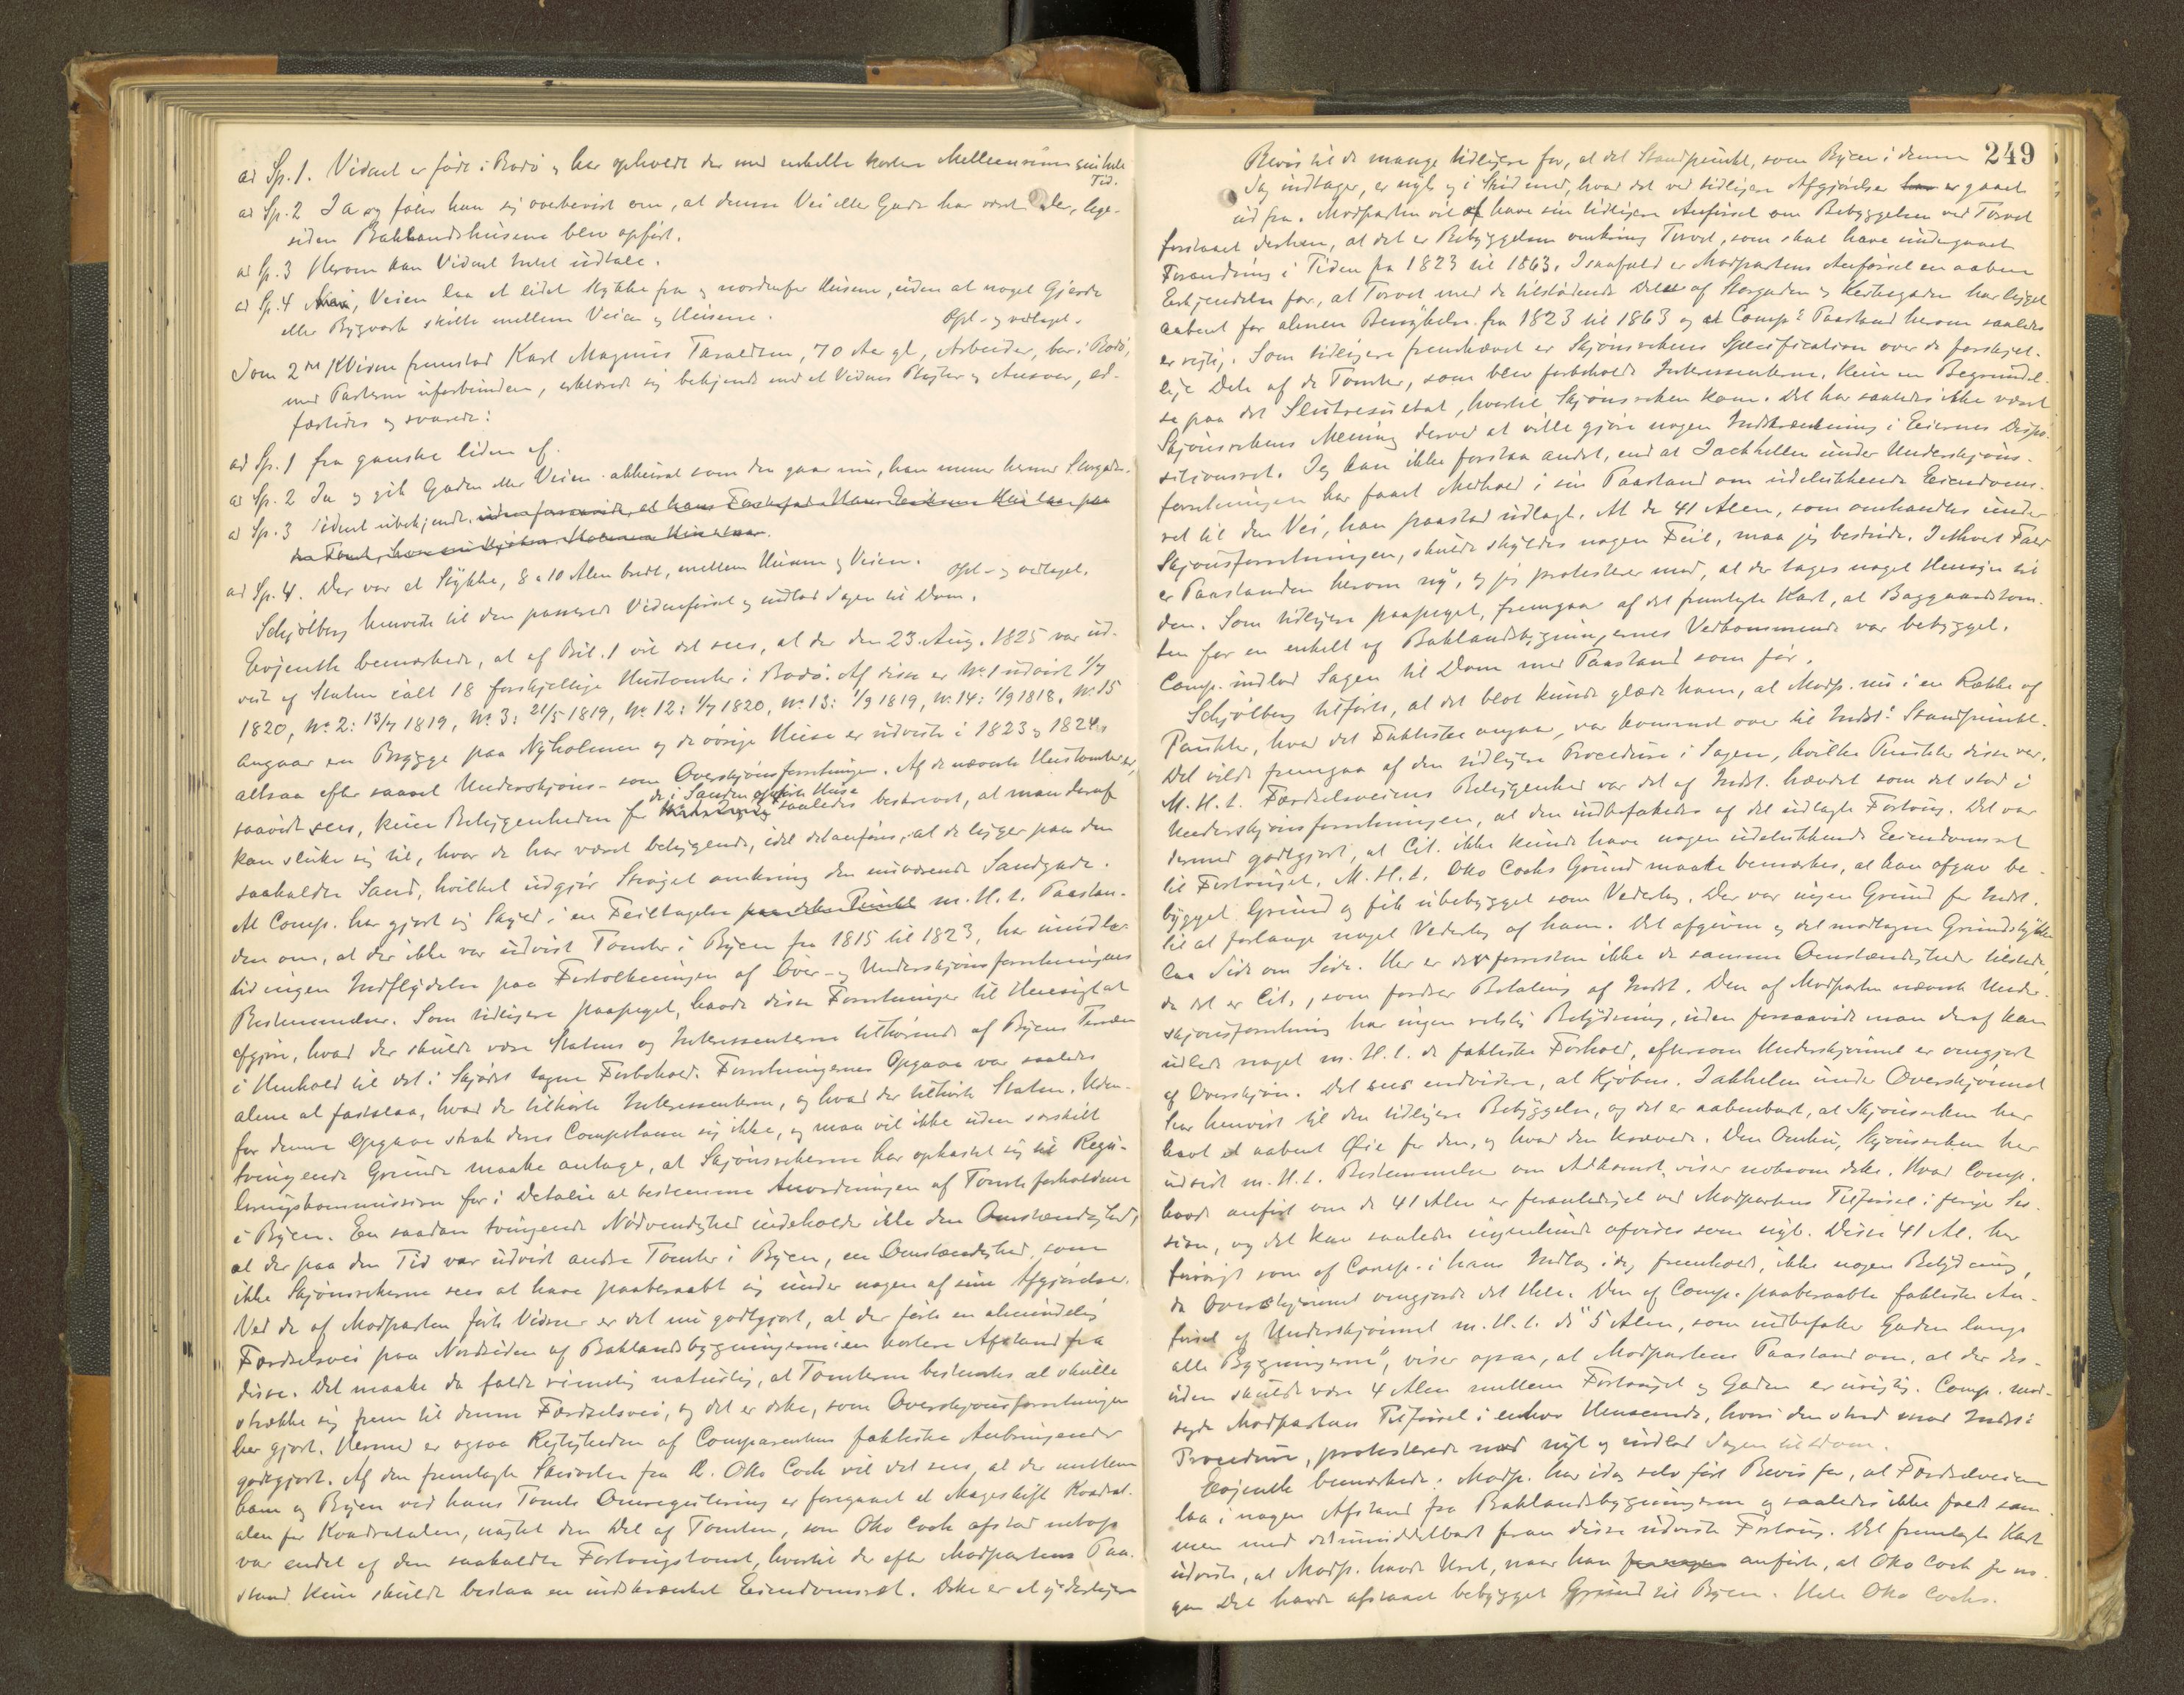 ad Sp. 1. Vidnet er født i Bodø og har opholdt der med enkelte kortere Mellemrum sin hele
Tid.
ad Sp. 2 Ja og føler han sig overbevist om, at denne Vei eller Gade har været der, lige-
siden Baklandshusene blev opført.
ad Sp. 3 Herom kan Vidnet Intet udtale.
ad Sp. 4 Nei, Veien laa et lidet Stykke fra og nordenfor Husene, uden at noget Gjærde
eller Bygværk skilte mellem Veien og Husene. Opl.- og vedtaget.
Som 2det Vidne fremstod Karl Magnus Taraldsen, 70 Aar gl, Arbeider, bor i Bodø,
med Parterne uforbunden, erklærede sig bekjendt med et Vidnes Pligter og Ansvar, ed-
fæstedes og svarede:
ad Sp. 1 fra ganske liden af.
ad Sp. 2 Ja og gik Gaden eller Veien akkurat som den gaar nu, han mener herved Storgaden.
ad Sp. 3 Vidnet ubekjendt, uden forsaavidt, at hans Hus laa paa
den Tomt,
ad Sp. 4. Der var et Stykke, 8 a 10 Alen bredt, mellem Husene og Veien. Opl.- og vedtaget.
Schjølberg henviste til den passerede Vidneførsel og indlod Sagen til Dom.
Evjenth bemærkede, at af Bil. 1 vil det sees, at der den 23. Aug. 1825 var ud-
vist af Staten ialt 18 forskjellige Hustomter i Bodø. Af disse er No 1 udvist 1/7
1820, No 2: 13/7 1819, No 3: 21/5 1819, No 12: 1/7 1820, No 13: 1/9 1819, No 14: 1/9 1818, No 15
angaar en Brygge paa Nyholmen og de øvrige Huse er udviste i 1823 og 1824,
altsaa efter saavel Underskjøns- som Overskjønsforretningen. Af de nævnte Hustomter er,
saavidt sees, kun Beliggenheden for de i Sanden opførte Huse saaledes beskrevet, at man deraf
kan slutte sig til, hvor de har været beliggende, idet det anføres, at de ligger paa den
saakaldte Sand, hvilket udgjør Strøget omkring den nuværende Sandgade.
At Comp. har gjort sig skyld i en Feiltagelse paa dette Punkt m. H. t. Paastan-
den om, at der ikke var udvist Tomter i Byen fra 1815 til 1823, har imidler-
tid ingen Indflydelse paa Fortolkningen af Over- og Underskjønsforretningens
Bestemmelser. Som tidligere paapeget, havde disse Forretninger til Hensigt at
afgjøre, hvad der skulde være Statens og Interessenterne tilhørende af Byens Terræn
i Henhold til det i Skjødet tagne Forbehold. Forretningernes Opgave var saaledes
alene at fastslaa, hvad der tilhørte Interessenterne, og hvad der tilhørte Staten. Uden-
for denne Opgave strak deres Competence sig ikke, og man vil ikke uden særskilt
tvingende Grunde maatte antage, at Skjønsrettene har opkastet sig til Regu-
leringskommission for i Detalie at bestemme Anordningen af Tomteforholdene
i Byen. En saadan tvingende Nødvendighed indeholder ikke den Omstændighed,
at der paa den Tid var udvist andre Tomter i Byen, en Omstændighed, som
ikke Skjønsretterne sees at have paaberaabt sig under nogen af sine Afgjørelser.
Ved de af Modparten førte Vidner er det nu godtgjort, at der førte en almindelig
Færdselsvei paa Nordsiden af Baklandsbygningerne i en kortere Afstand fra
disse. Det maatte da falde rimelig naturlig, at Tomterne bestemtes at skulle
strække sig frem til denne Færdselsvei, og det er dette, som Overskjønsforretningen
har gjort. Hermed er ogsaa Rigtigheden af Comparentens faktiske Anbringender
godtgjort. Af den fremlagte Skrivelse fra A. Otto Coch vil det sees, at der mellem
ham og Byen ved hans Tomts Omregulering er foregaaet et Mageskifte Kvadrat-
alen for Kvadratalen, uagtet den Del af Tomten, som Otto Coch afstod netop
var endel af den saakaldte Fortougstomt, hvortil der efter Modpartens Paa-
stand kun skulde bestaa en indskrænket Eiendomsret. Dette er et yderligere
249
Bevis til de mange tidligere for, at det Standpunkt, som Byen i denne
Sag indtager, er nyt og i Strid med, hvad det ved tidligere Afgjørelser har er gaaet
ud fra. Modparten vil have sin tidligere Anførsel om Bebyggelsen ved Torvet
forstaaet derhen, at det er Bebyggelsen omkring Torvet, som skal have undergaaet
Forandring i Tiden fra 1823 til 1863. I saafald er Modpartens Anførsel en aaben
Erkjendelse for, at Torvet med de tilstødende Dele af Storgaden og Kirkegaden har ligget
aabent for almen Benyttelse fra 1823 til 1863 og at Comps Paastand herom saaledes
er rigtig. Som tidligere fremhævet er Skjønsrettens Specification over de forskjel-
lige Dele af de Tomter, som blev forbeholdt Interessenterne, kun en Begrundel-
se paa det Slutresultat, hvortil Skjønsretten kom. Det har saaledes ikke været
Skjønsrettens Mening derved at ville gjøre nogen Indskrænkning i Eiernes Dispo-
sitionsret. Jeg kan ikke forstaa andet, end at Jackhelln under Underskjøns-
forretningen har faaet Medhold i sin Paastand om udelukkende Eiendoms-
ret til den Vei, han paastod udlagt. At de 41 Alen, som omhandles under
Skjønsforretningen, skulde skyldes nogen Feil, maa jeg bestride. I ethvert Fald
er Paastanden herom ny, og jeg protesterer mod, at der tages noget Hensyn til
den. Som tidligere paapeget, fremgaar af det fremlagte Kart, at Baggaardstom-
ten for en enkelt af Baklandsbygningernes Vedkommende var bebygget.
Comp. indlod Sagen til Dom med Paastand som før.
Schjølberg tilførte, at det blot kunde glæde ham, at Modp. nu i en Række af
Punkter, hvad det Faktiske angaar, var kommet over til Indst. Standpunkt.
Det vilde fremgaa af den tidligere Procedure i Sagen, hvilke Punkter disse var.
M. H. t. Færdselsveiens Beliggenhed var det af Indst. hævdet som det stod i
Underskjønsforretningen, at den indbefattedes af det udlagte Fortoug. Det var
dermed godtgjort, at Cit. ikke kunde have nogen udelukkende Eiendomsret
til Fortouget. M. H. t. Otto Cochs Grund maatte bemærkes, at han afgav be-
bygget Grund og fik ubebygget som Vederlag. Der var ingen Grund for Indst.
til at forlange noget Vederlag af ham. Det afgivne og det modtagne Grundstykke
laa Side om Side. Her er det forresten ikke de samme Omstændigheder tilstede,
da det er Cit., som fordrer Betaling af Indst. Den af Modparten nævnte Under-
skjønsforretning har ingen retslig Betydning, uden forsaavidt man deraf kan
udlede noget m. H. t. de faktiske Forhold, eftersom Underskjønnet er omgjort
af Overskjøn. Det sees endvidere, at Kjøbm. Jakhelln under Overskjønnet
har henvist til den tidligere Bebyggelse, og det er aabenbart, at Skjønsretten har
havt et aabent Øie for den, og hvad den krævede. Den Omhu, Skjønsretten har
udvist m. H. t. Bestemmelse om Adkomst, viser noksom dette. Hvad Comp.
havde anført om de 41 Alen er foranlediget ved Modpartens Tilførsel i forrige Ses-
sion, og det kan saaledes ingenlunde afvises som nyt. Disse 41 Al. har
forøvrigt som af Comp. i hans Indlæg idag fremholdt, ikke nogen Betydning,
da Overskjønnet omgjorde det Hele. Den af Comp. paaberaabte faktiske An-
førsel af Underskjønnet m. H. t. de "5 Alen, som indbefatter Gaden langs
alle Bygningerne", viser ogsaa, at Modpartens Paastand om, at der des-
uden skulde være 4 Alen mellem Fortouget og Gaden er urigtig. Comp. mod-
sagde Modpartens Tilførsel i enhver Henseende, hvori den stred mod Indsts
Procedure, protesterede mod nyt og indlod Sagen til Dom.
Evjenth bemærkede: Modp. har idag selv ført Bevis for, at Færdselsveien
laa i nogen Afstand fra Baklandsbygningerne og saaledes ikke faldt sam-
men med det umiddelbart foran disse udviste Fortoug. Det fremlagte Kart
udviste, at Modp. havde Uret, naar han anførte, at Otto Coch for no-
gen Del havde afstaaet bebygget Grund til Byen. Hele Otto Cochs